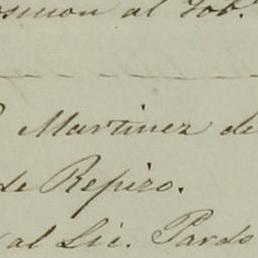 osicion al Gob.
Martinez de
de Repizo.
al Lic. Pardo